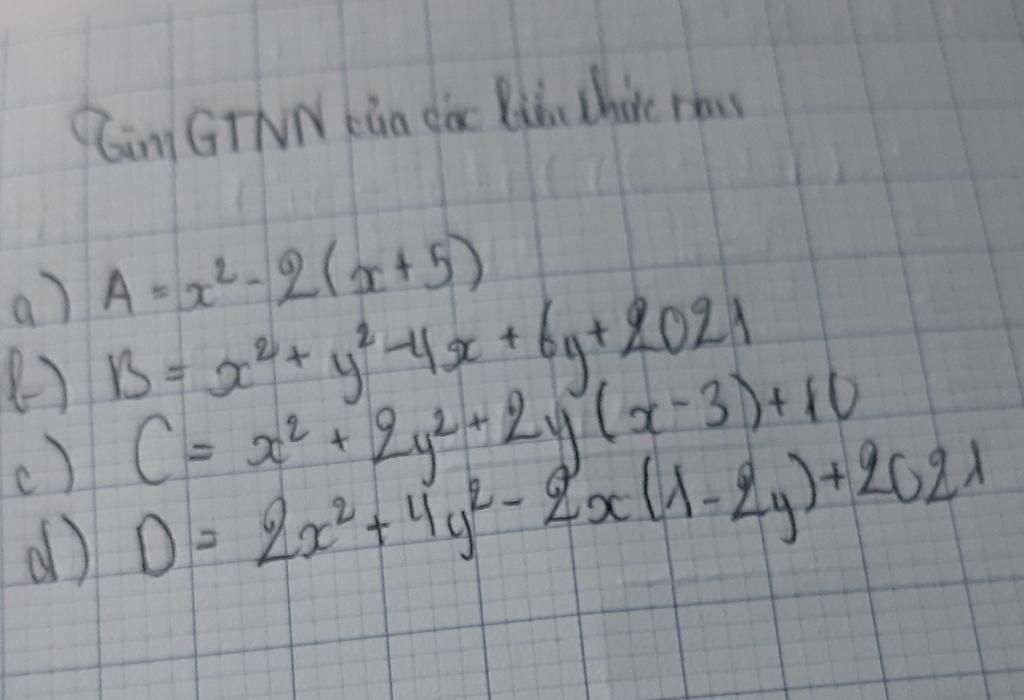 Tìm GTNN của các biểu thức sau
a) A = x² - 2(x+5)
b) B = x² + y² - 4x + 6y + 2021
c) C = x² + 2y² + 2y(x-3) + 10
d) D = 2x² + 4y² - 2x(1-2y) + 2021